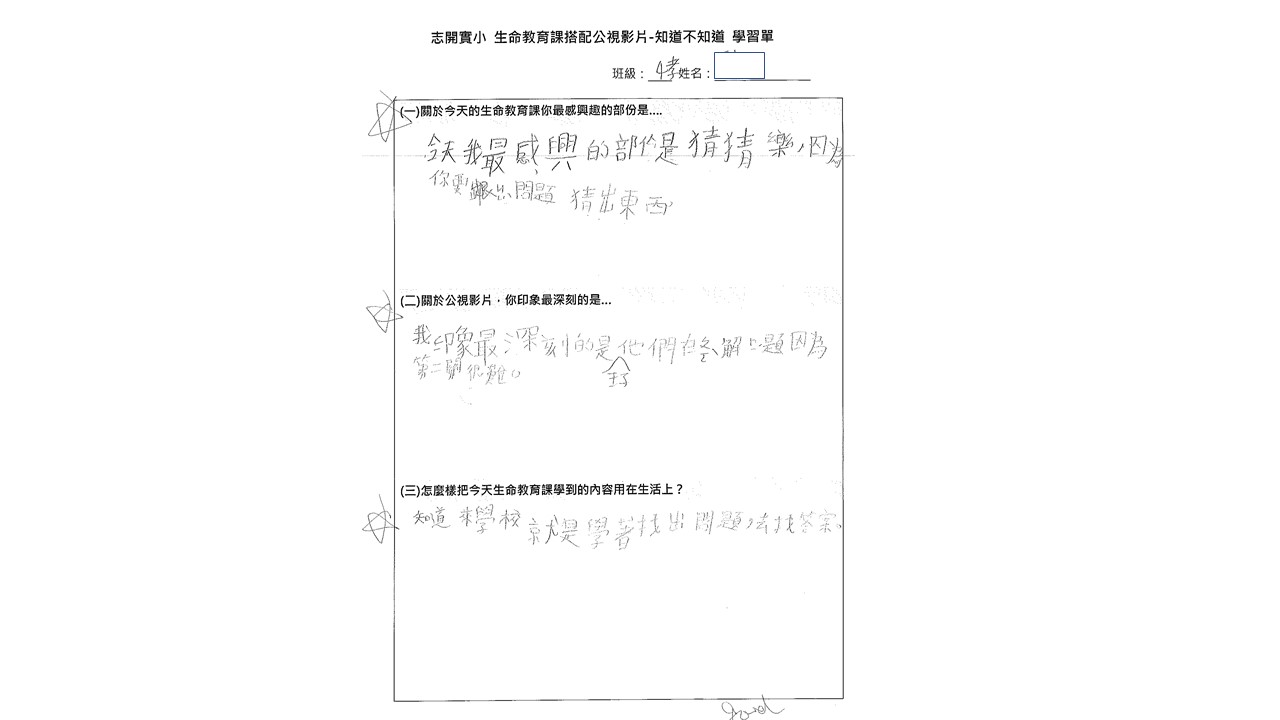 志開實小 生命教育課搭配公視影片-知道不知道 學習單
班級：4孝 姓名：
(一)關於今天的生命教育課你最感興趣的部份是....
今天我最感興的部份是猜猜樂，因為
你要 問題 猜出東西
(二)關於公視影片，你印象最深刻的是...
我印象最深刻的是他們在 解 題因為
第二關很難。
(三)怎麼樣把今天生命教育課學到的內容用在生活上？
知道來學校就是學著找出問題，去找答案。
Good